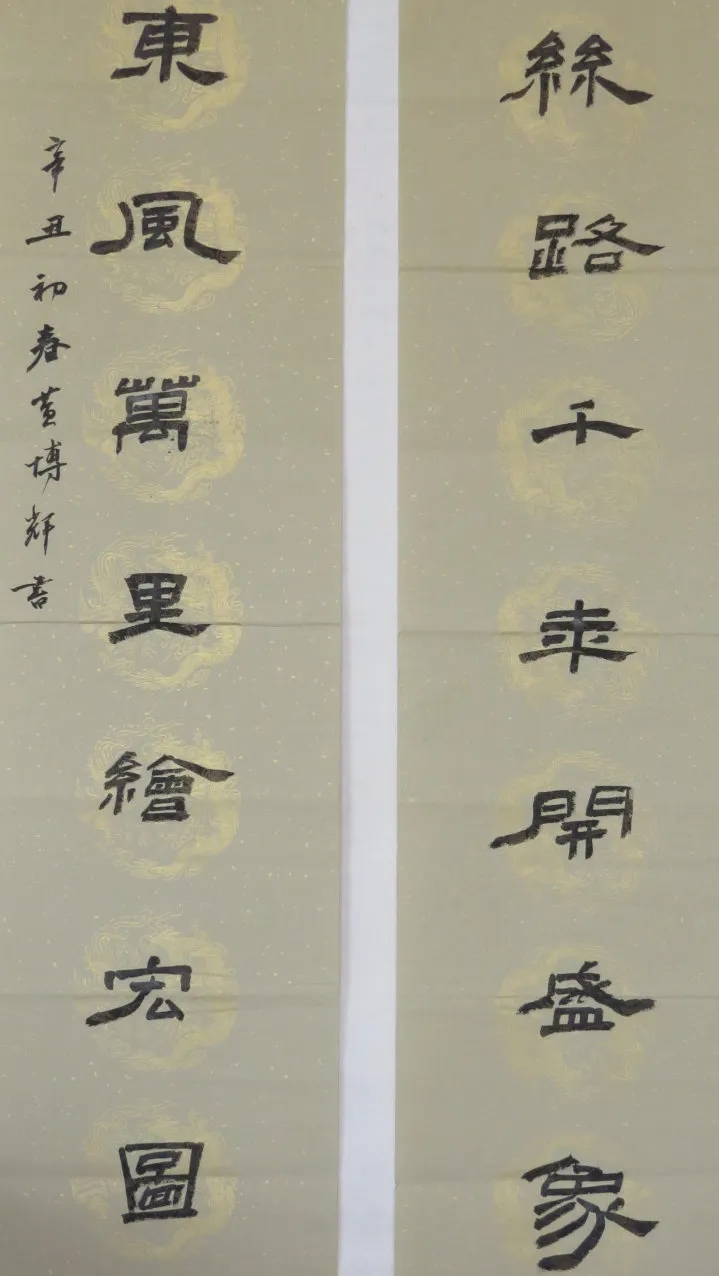 絲路千年開盛象
東風萬里繪宏圖
辛丑初春黃博輝書